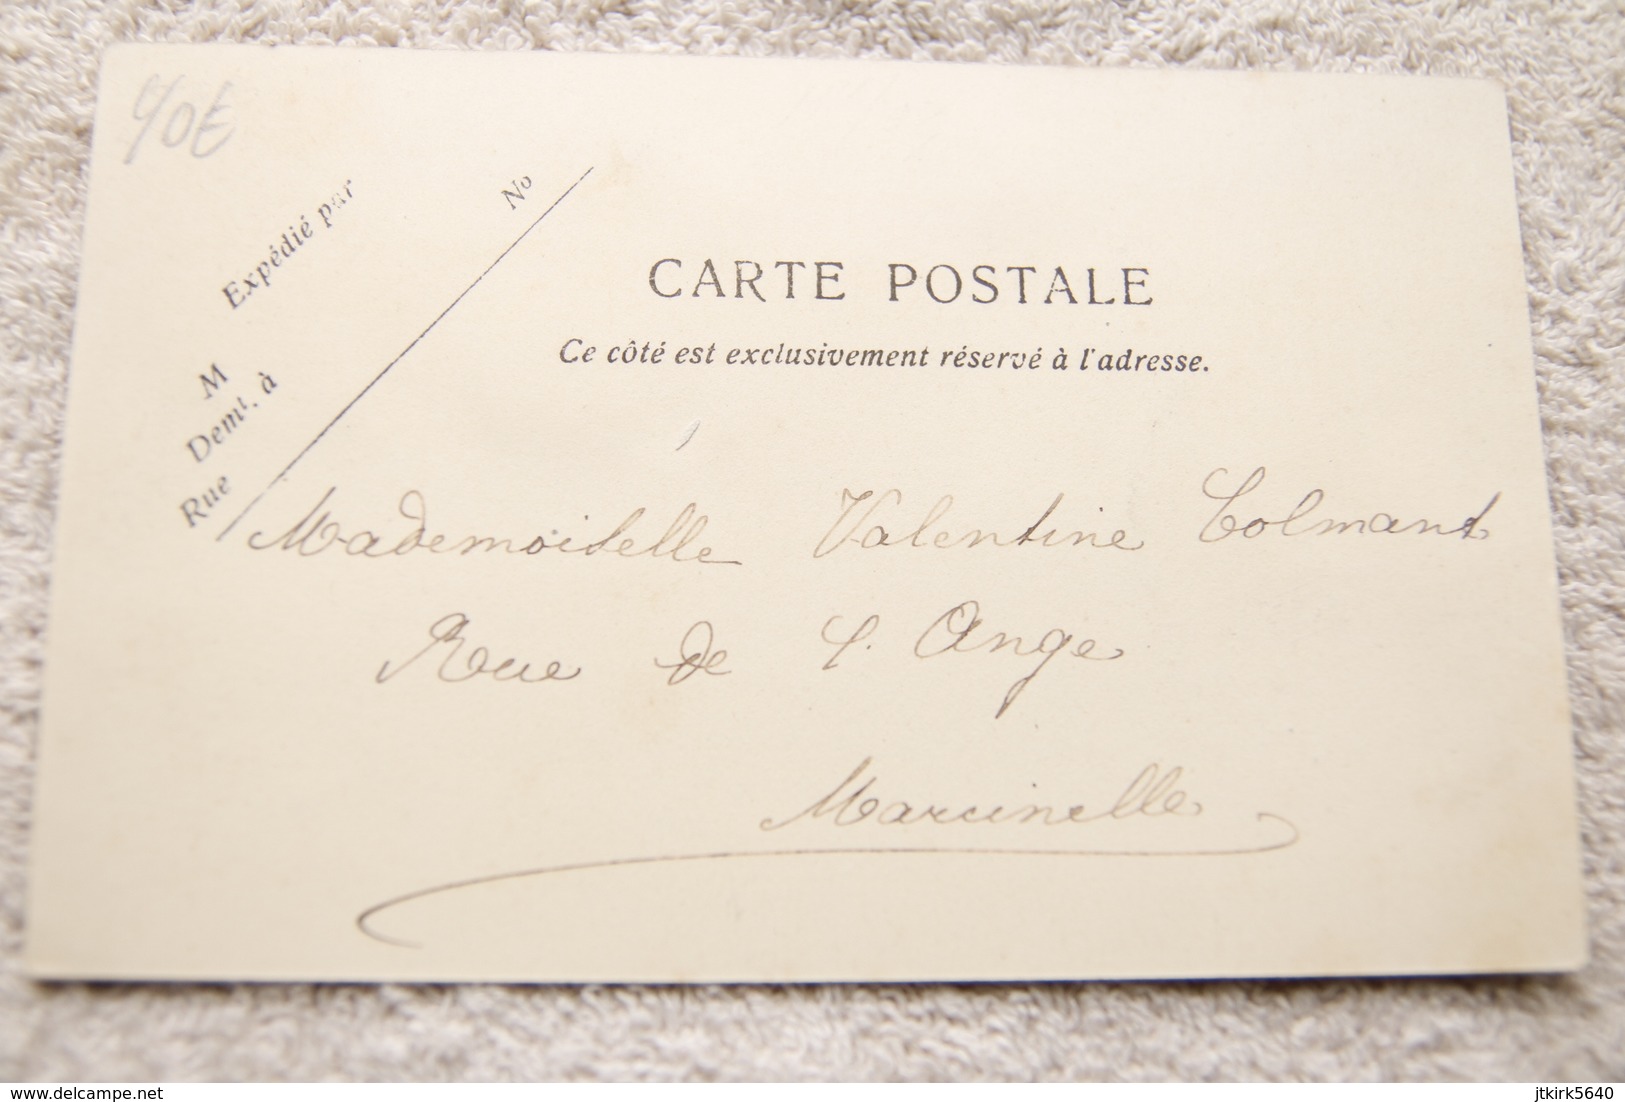 40€
Expédié par
M
Demt. à
Rue
No
CARTE POSTALE
Ce côté est exclusivement réservé à l'adresse.
Mademoiselle Valentine Colmant
Rue de l'Ange
Marcinelle
www.delcampe.net
jtkirk5640